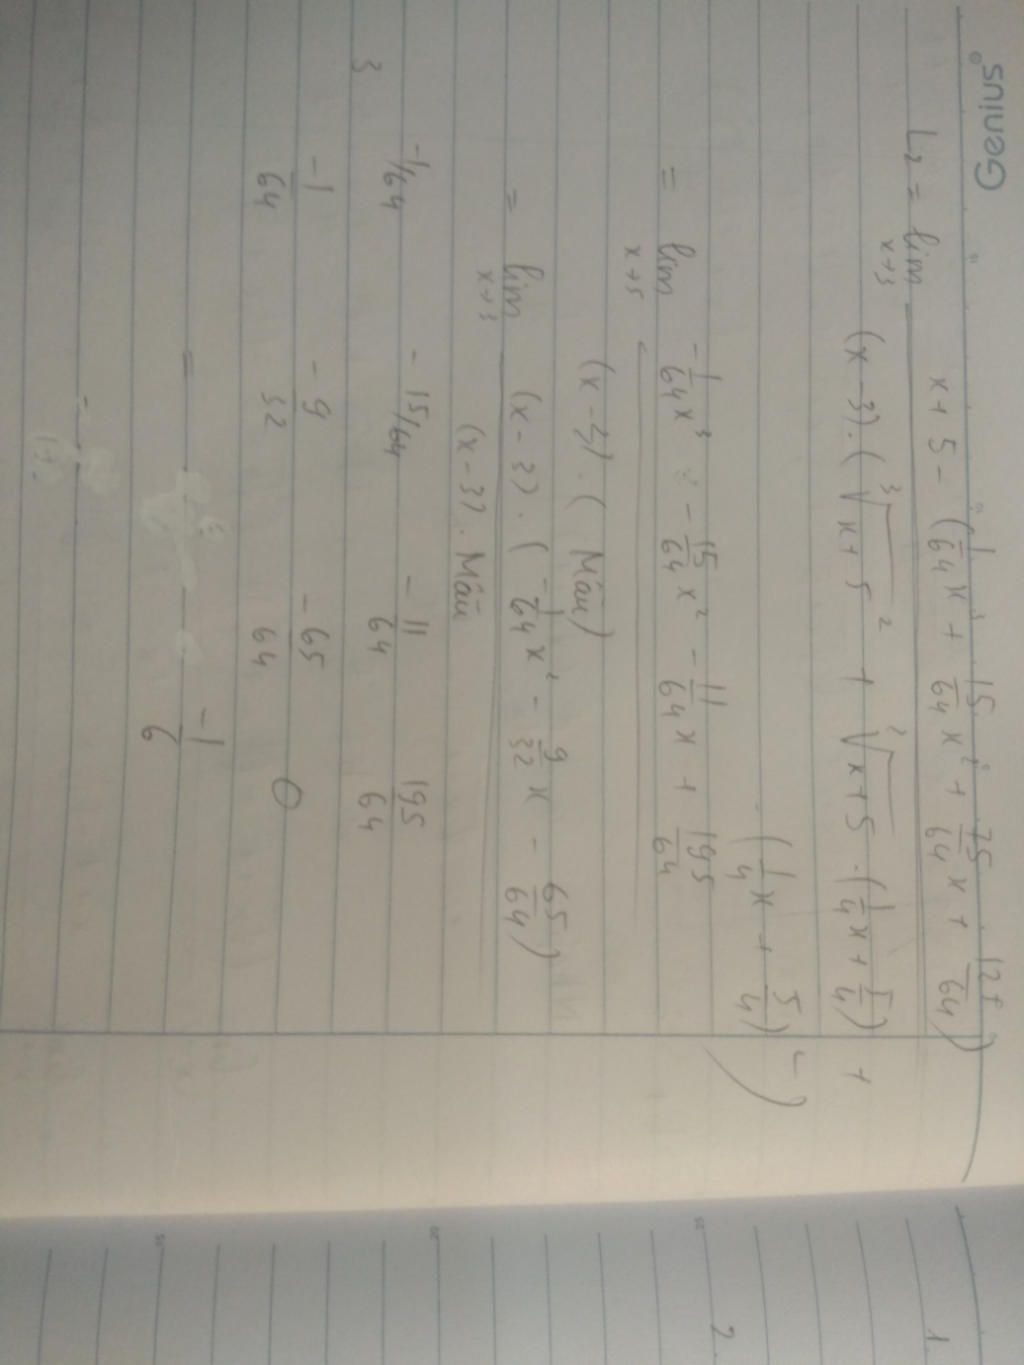 Genius
L₂ = lim x→3 x + 5 - (1/64 x³ + 15/64 x² + 75/64 x + 125/64)
(x - 3). (³√x+5 ² + ³√x+5 . (1/4 x + 5/4) +
(1/4 x + 5/4)²)
= lim x→3 -1/64 x³ - 15/64 x² - 11/64 x + 195/64
(x - 3). ( Mẫu)
= lim x→3 (x - 3). (-1/64 x² - 9/32 x - 65/64)
(x - 3). Mẫu
-1/64 - 15/64 - 11/64 195/64
3 -1/64 - 9/32 - 65/64 0
= -1/6
1
2